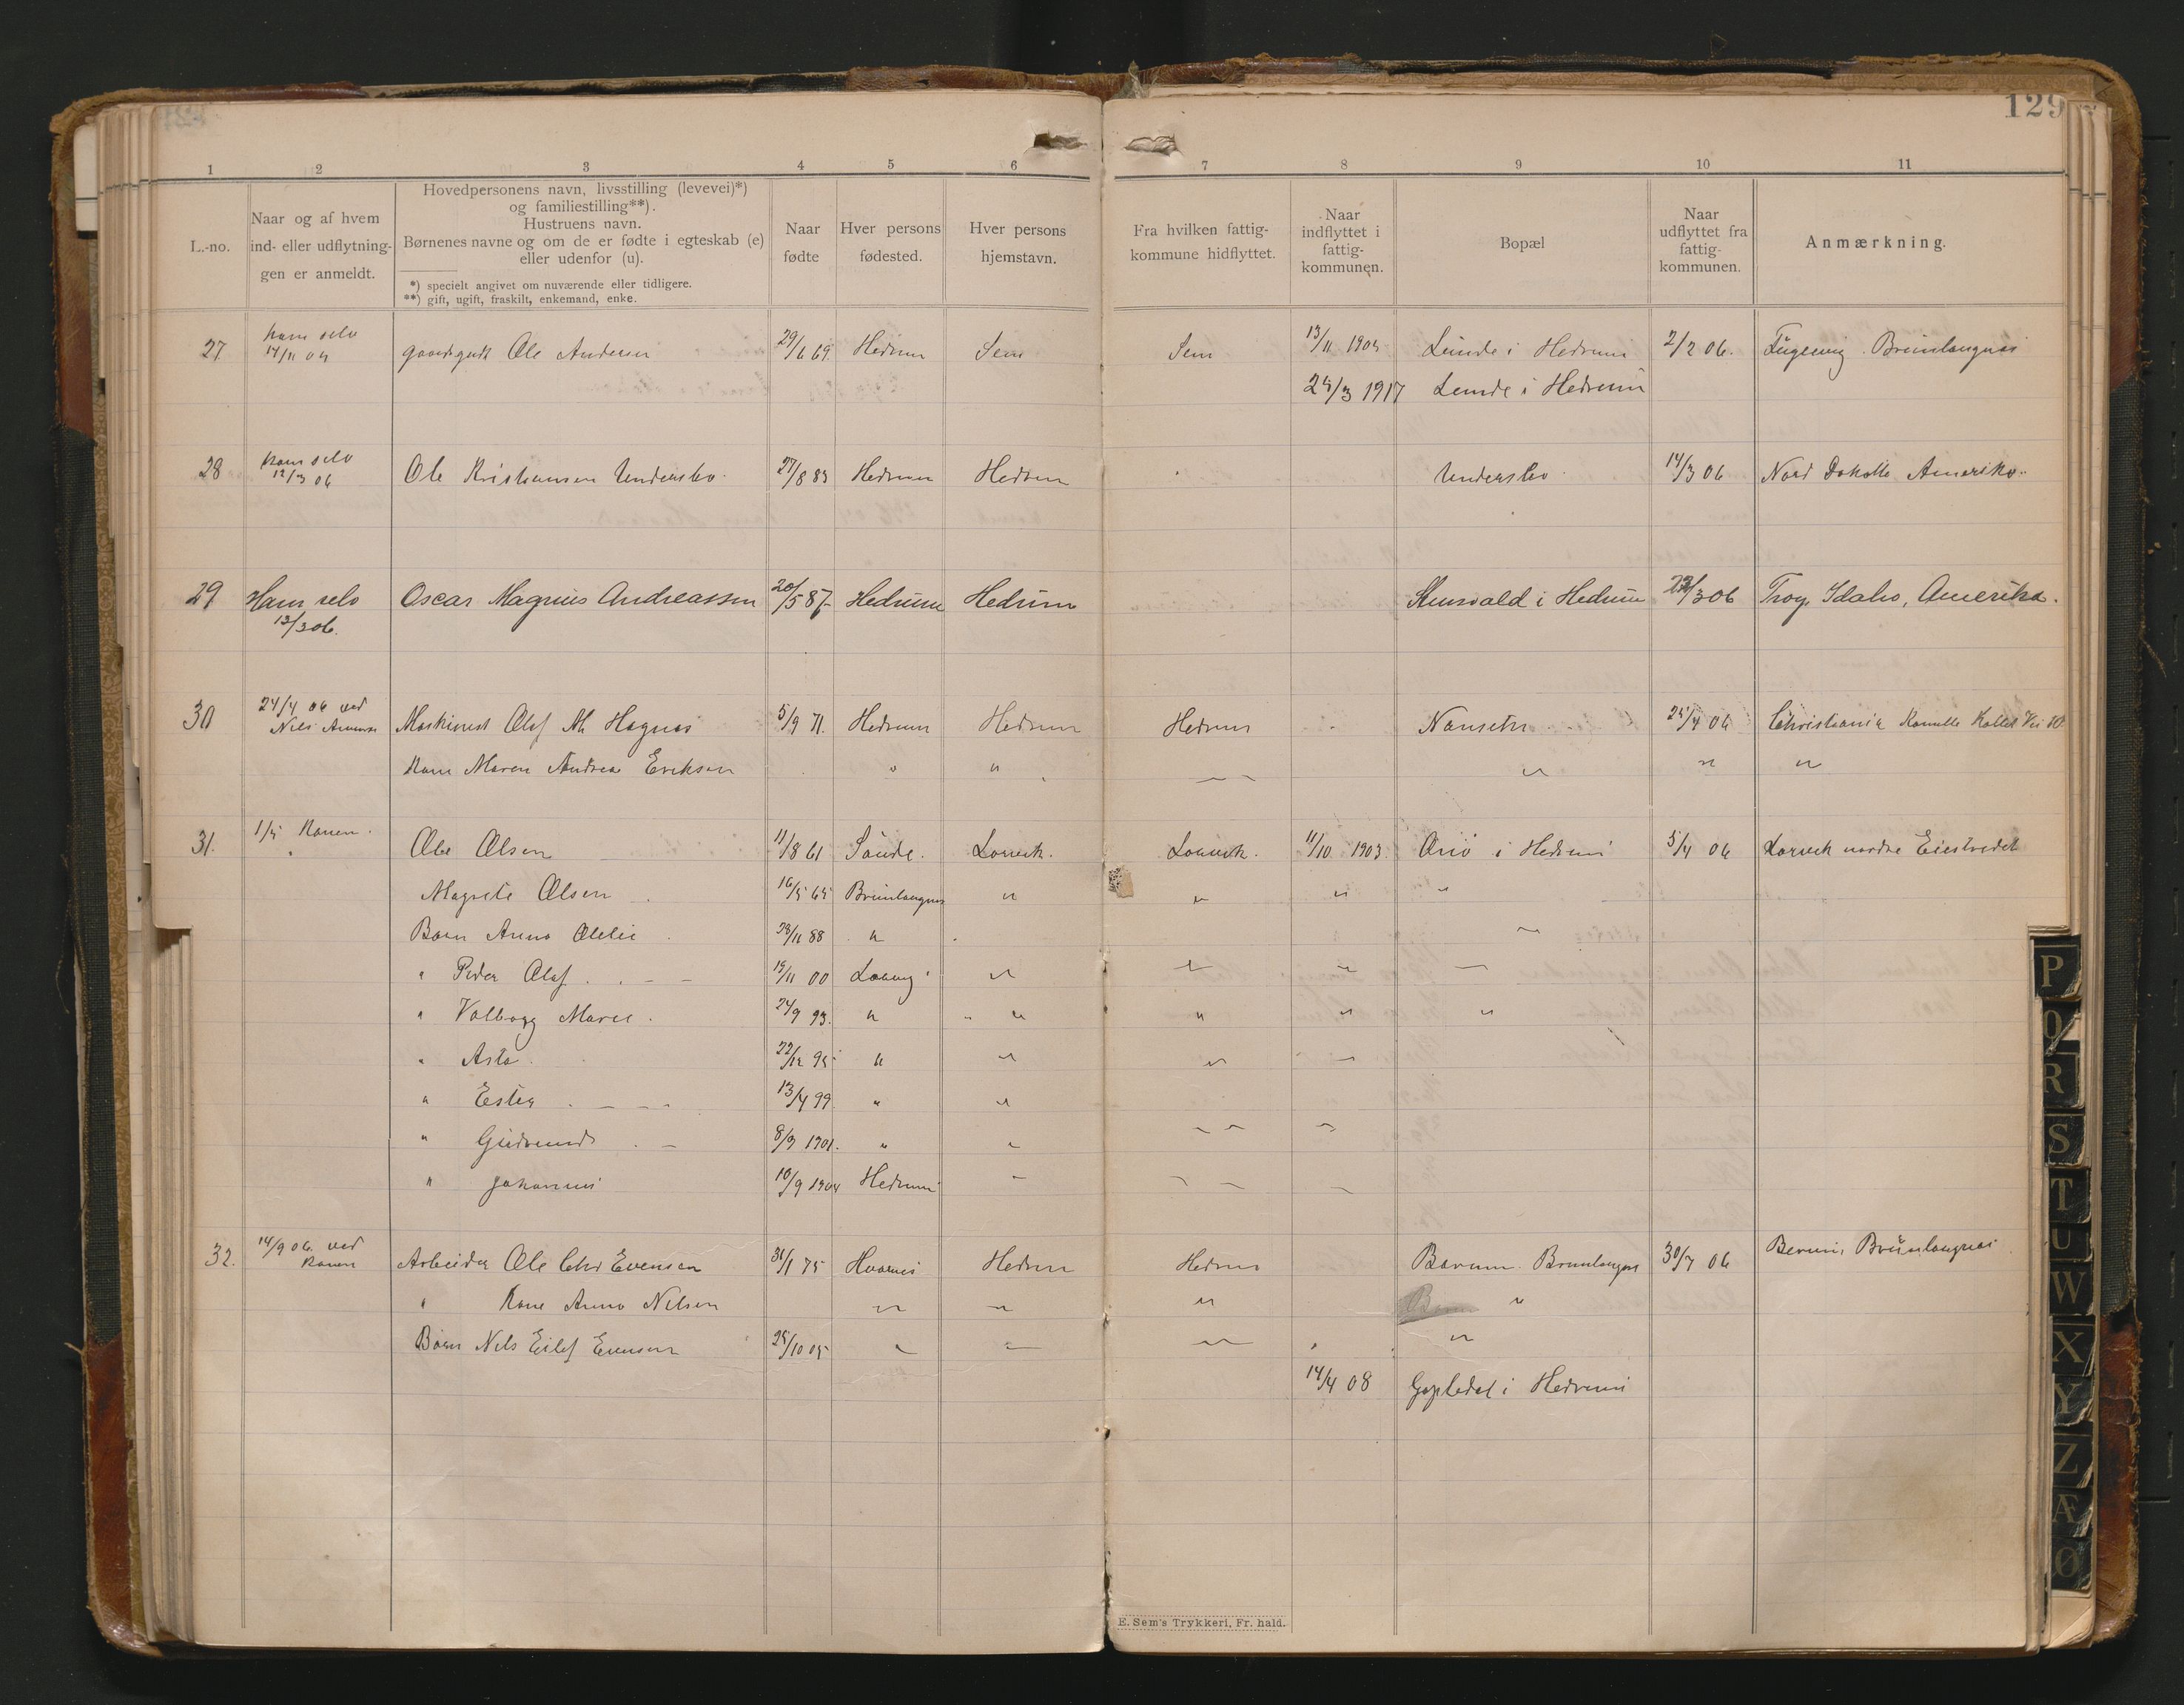 129
1 2 3 4 5 6 7 8 9 10 11
L.-no.
Naar og af hvem
ind- eller udflytning-
gen er anmeldt.
Hovedpersonens navn, livsstilling (levevei)*)
og familiestilling**).
Hustruens navn.
Børnenes navne og om de er fødte i egteskab (e)
eller udenfor (u).
*) specielt angivet om nuværende eller tidligere.
**) gift, ugift, fraskilt, enkemand, enke.
Naar
fødte
Hver persons
fødested.
Hver persons
hjemstavn.
Fra hvilken fattig-
kommune hidflyttet.
Naar
indflyttet i
fattig-
kommunen.
Bopæl
Naar
udflyttet fra
fattig-
kommunen.
Anmærkning.
27 ham selv 14/11 04 Ole Andersen 29/6 69. Hedrum Sem Sem 13/11 1904 Lunde i Hedrum 2/2 06. Brunlangnæs
24/3 1917 Lunde i Hedrum
28 ham selv 12/3 06 Ole Kristiansen Undersbo 27/8 83 Hedrum Hedrum Undersbo 14/3 06 Nord Dakotta Amerika
29 Ham selv 13/3 06. Oscar Magnus Andreassen 20/5 87 Hedrum Hedrum i Hedrum /3 06 Troy, Idaho, Amerika.
30 24/4 06 ved Nils Maskinist Olaf M. Hagnæs 5/9 71. Hedrum Hedrum Hedrum Nanseth 25/4 06 Christiania Kamilla Kollet Vei 10
Kone Maren Andrea Eriksen " " " " "
31. 1/5 Konen. Ole Olsen 11/8 61 Sande. Larvik. Larvik. 11/10 1903 i Hedrum 5/4 06 Larvik nordre
Magrete Olsen 16/5 65 Brunlangnæs " " " "
Børn Anna 28/11 88 "
" Peder Olaf 19/11 00 "
" Valborg Marie 24/9 93. " " " " "
" Asta 22/12 95 " " "
" Ester 13/4 99 " "
" Gudrund 8/9 1901. " "
" Johannes 10/9 1904 Hedrum
32. 14/9 06. ved Konen Arbeider Ole Chr Evensen 31/1 75 Hvarnes Hedrum Hedrum Brunlangnæs 30/7 06 Brunlangnæs
" Kone Anna Nilsen " " " "
Børn Nils Eilef Evensen 25/10 05 " "
14/4 08 i Hedrum
E. Sem's Trykkeri, Fr. hald.
P
Q
R
S
T
U
W
X
Y
Z
Æ
Ø